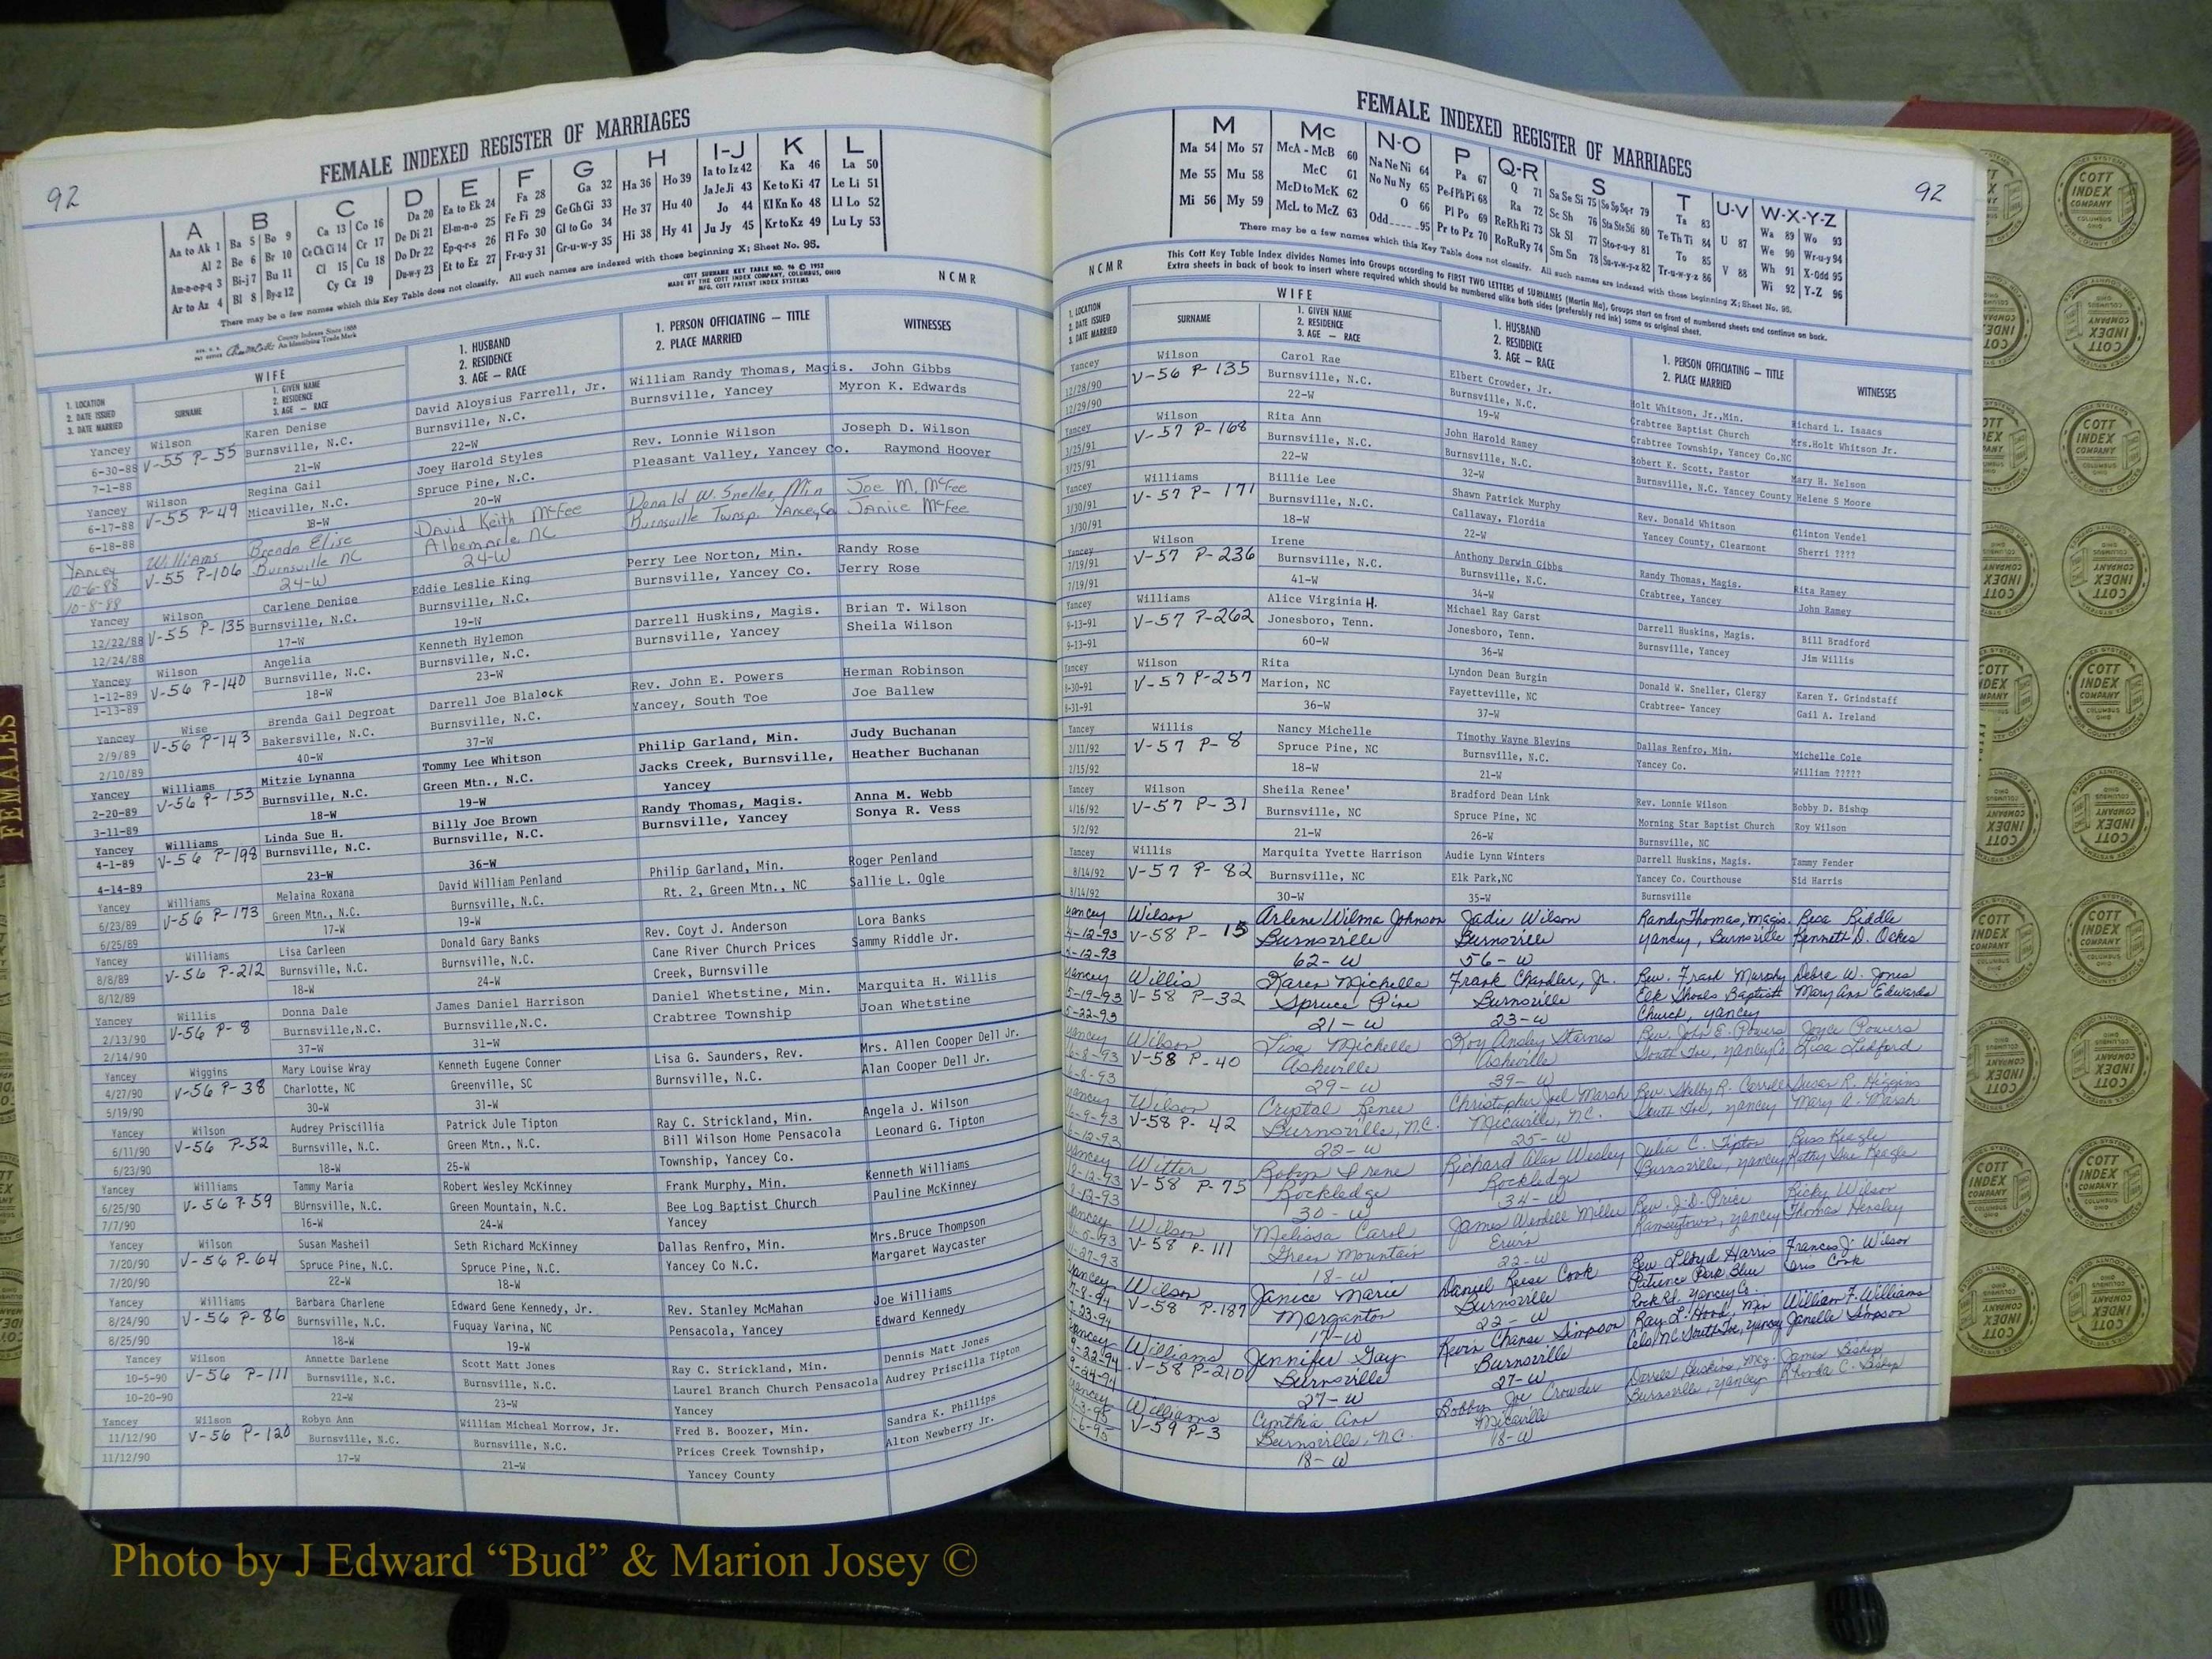 92
FEMALE INDEXED REGISTER OF MARRIAGES
A B C D E F G H I-J K L
Aa to Ak 1 Ba 5 Bo 9 Ca 13 Co 16 Da 20 Ea to Ek 24 Fa 28 Ga 32 Ha 36 Ho 39 Ia to Iz 42 Ka 46 La 50
Al 2 Be 6 Br 10 Ce Ch Ci 14 Cr 17 De Di 21 El-m-n-o 25 Fe Fi 29 Ge Gh Gi 33 He 37 Hu 40 Ja Je Ji 43 Ke to Ki 47 Le Li 51
Am-n-o-p-q 3 Bi-j 7 Bu 11 Cl 15 Cu 18 Do Dr 22 Ep-q-r-s 26 Fl Fo 30 Gl to Go 34 Hi 38 Hy 41 Jo 44 Kl Kn Ko 48 Ll Lo 52
Ar to Az 4 Bl 8 By-z 12 Cy Cz 19 Du-w-y 23 Et to Ez 27 Fr-u-y 31 Gr-u-w-y 35 Ju Jy 45 Kr to Kz 49 Lu Ly 53
There may be a few names which this Key Table does not classify. All such names are indexed with those beginning X; Sheet No. 95.
COTT SURNAME KEY TABLE NO. 96 © 1952
MADE BY THE COTT INDEX COMPANY, COLUMBUS, OHIO
MFG. COTT PATENT INDEX SYSTEMS
NCMR
County Indexes Since 1888
An Identifying Trade Mark
WIFE
1. LOCATION
2. DATE ISSUED
3. DATE MARRIED
SURNAME
1. GIVEN NAME
2. RESIDENCE
3. AGE — RACE
1. HUSBAND
2. RESIDENCE
3. AGE — RACE
1. PERSON OFFICIATING — TITLE
2. PLACE MARRIED
WITNESSES
Yancey Wilson Karen Denise David Aloysius Farrell, Jr. William Randy Thomas, Magis. John Gibbs
6-30-88 V-55 P-55 Burnsville, N.C. Burnsville, N.C. Burnsville, Yancey Myron K. Edwards
7-1-88 21-W 22-W
Yancey Wilson Regina Gail Joey Harold Styles Rev. Lonnie Wilson Joseph D. Wilson
6-17-88 V-55 P-49 Micaville, N.C. Spruce Pine, N.C. Pleasant Valley, Yancey Co. Raymond Hoover
6-18-88 18-W 20-W
Yancey Williams Brenda Elise David Keith McFee Donald W. Sneller, Min Joe M. McFee
10-6-88 V-55 P-106 Burnsville NC Albemarle NC Burnsville Twnsp. Yancey Co Janice McFee
10-8-88 24-W 24-W
Yancey Wilson Carlene Denise Eddie Leslie King Perry Lee Norton, Min. Randy Rose
12/22/88 V-55 P-135 Burnsville, N.C. Burnsville, N.C. Burnsville, Yancey Co. Jerry Rose
12/24/88 17-W 19-W
Yancey Wilson Angelia Kenneth Hylemon Darrell Huskins, Magis. Brian T. Wilson
1-12-89 V-56 P-140 Burnsville, N.C. Burnsville, N.C. Burnsville, Yancey Sheila Wilson
1-13-89 18-W 23-W
Yancey Wise Brenda Gail Degroat Darrell Joe Blalock Rev. John E. Powers Herman Robinson
2/9/89 V-56 P-143 Bakersville, N.C. Burnsville, N.C. Yancey, South Toe Joe Ballew
2/10/89 40-W 37-W
Yancey Williams Mitzie Lynanna Tommy Lee Whitson Philip Garland, Min. Judy Buchanan
2-20-89 V-56 P-153 Burnsville, N.C. Green Mtn., N.C. Jacks Creek, Burnsville, Heather Buchanan
3-11-89 18-W 19-W Yancey
Yancey Williams Linda Sue H. Billy Joe Brown Randy Thomas, Magis. Anna M. Webb
4-1-89 V-56 P-198 Burnsville, N.C. Burnsville, N.C. Burnsville, Yancey Sonya R. Vess
4-14-89 23-W 36-W
Yancey Williams Melaina Roxana David William Penland Philip Garland, Min. Roger Penland
6/23/89 V-56 P-173 Green Mtn., N.C. Burnsville, N.C. Rt. 2, Green Mtn., NC Sallie L. Ogle
6/25/89 17-W 19-W
Yancey Williams Lisa Carleen Donald Gary Banks Rev. Coyt J. Anderson Lora Banks
8/8/89 V-56 P-212 Burnsville, N.C. Burnsville, N.C. Cane River Church Prices Sammy Riddle Jr.
8/12/89 18-W 24-W Creek, Burnsville
Yancey Willis Donna Dale James Daniel Harrison Daniel Whetstine, Min. Marquita H. Willis
2/13/90 V-56 P-8 Burnsville,N.C. Burnsville,N.C. Crabtree Township Joan Whetstine
2/14/90 37-W 31-W
Yancey Wiggins Mary Louise Wray Kenneth Eugene Conner Lisa G. Saunders, Rev. Mrs. Allen Cooper Dell Jr.
4/27/90 V-56 P-38 Charlotte, NC Greenville, SC Burnsville, N.C. Alan Cooper Dell Jr.
5/19/90 30-W 31-W
Yancey Wilson Audrey Priscillia Patrick Jule Tipton Ray C. Strickland, Min. Angela J. Wilson
6/11/90 V-56 P-52 Burnsville, N.C. Green Mtn., N.C. Bill Wilson Home Pensacola Leonard G. Tipton
6/23/90 18-W 25-W Township, Yancey Co.
Yancey Williams Tammy Maria Robert Wesley McKinney Frank Murphy, Min. Kenneth Williams
6/25/90 V-56 P-59 BUrnsville, N.C. Green Mountain, N.C. Bee Log Baptist Church Pauline McKinney
7/7/90 16-W 24-W Yancey
Yancey Wilson Susan Masheil Seth Richard McKinney Dallas Renfro, Min. Mrs.Bruce Thompson
7/20/90 V-56 P-64 Spruce Pine, N.C. Spruce Pine, N.C. Yancey Co N.C. Margaret Waycaster
7/20/90 22-W 18-W
Yancey Williams Barbara Charlene Edward Gene Kennedy, Jr. Rev. Stanley McMahan Joe Williams
8/24/90 V-56 P-86 Burnsville, N.C. Fuquay Varina, NC Pensacola, Yancey Edward Kennedy
8/25/90 18-W 19-W
Yancey Wilson Annette Darlene Scott Matt Jones Ray C. Strickland, Min. Dennis Matt Jones
10-5-90 V-56 P-111 Burnsville, N.C. Burnsville, N.C. Laurel Branch Church Pensacola Audrey Priscilla Tipton
10-20-90 22-W 23-W Yancey
Yancey Wilson Robyn Ann William Micheal Morrow, Jr. Fred B. Boozer, Min. Sandra K. Phillips
11/12/90 V-56 P-120 Burnsville, N.C. Burnsville, N.C. Prices Creek Township, Alton Newberry Jr.
11/12/90 17-W 21-W Yancey County
FEMALE INDEXED REGISTER OF MARRIAGES
92
M Mc N-O P Q-R S T U-V W-X-Y-Z
Ma 54 Mo 57 McA - McB 60 Na Ne Ni 64 Pa 67 Q 71 Sa Se Si 75 So Sp Sq-r 79 Ta 83 Wa 89 Wo 93
Me 55 Mu 58 McC 61 No Nu Ny 65 Pe-f Ph Pi 68 Ra 72 Sc Sh 76 Sta Ste Sti 80 Te Th Ti 84 U 87 We 90 Wr-u-y 94
Mi 56 My 59 McD to McK 62 O 66 Pl Po 69 Re Rh Ri 73 Sk Sl 77 Sto-r-u-y 81 To 85 Wh 91 X-Odd 95
McL to McZ 63 Odd 95 Pr to Pz 70 Ro Ru Ry 74 Sm Sn 78 Su-v-w-y-z 82 Tr-u-w-y-z 86 V 88 Wi 92 Y-Z 96
There may be a few names which this Key Table does not classify. All such names are indexed with those beginning X; Sheet No. 95.
NCMR
This Cott Key Table Index divides Names into Groups according to FIRST TWO LETTERS of SURNAMES (Martin Ma), Groups start on front of numbered sheets and continue on back.
Extra sheets in back of book to insert where required which should be numbered alike both sides (preferably red ink) same as original sheet.
WIFE
1. LOCATION
2. DATE ISSUED
3. DATE MARRIED
SURNAME
1. GIVEN NAME
2. RESIDENCE
3. AGE — RACE
1. HUSBAND
2. RESIDENCE
3. AGE — RACE
1. PERSON OFFICIATING — TITLE
2. PLACE MARRIED
WITNESSES
Yancey Wilson Carol Rae Elbert Crowder, Jr. Holt Whitson, Jr.,Min. Richard L. Isaacs
12/28/90 V-56 P-135 Burnsville, N.C. Burnsville, N.C. Crabtree Baptist Church Mrs.Holt Whitson Jr.
12/29/90 22-W 19-W Crabtree Township, Yancey Co.NC
Yancey Wilson Rita Ann John Harold Ramey Robert K. Scott, Pastor Mary H. Nelson
3/25/91 V-57 P-168 Burnsville, N.C. Burnsville, N.C. Burnsville, N.C. Yancey County Helene S Moore
3/25/91 22-W 32-W
Yancey Williams Billie Lee Shawn Patrick Murphy Rev. Donald Whitson Clinton Vendel
3/30/91 V-57 P-171 Burnsville, N.C. Callaway, Flordia Yancey County, Clearmont Sherri ????
3/30/91 18-W 22-W
Yancey Wilson Irene Anthony Derwin Gibbs Randy Thomas, Magis. Rita Ramey
7/19/91 V-57 P-236 Burnsville, N.C. Burnsville, N.C. Crabtree, Yancey John Ramey
7/19/91 41-W 34-W
Yancey Williams Alice Virginia H. Michael Ray Garst Darrell Huskins, Magis. Bill Bradford
9-13-91 V-57 P-262 Jonesboro, Tenn. Jonesboro, Tenn. Burnsville, Yancey Jim Willis
9-13-91 60-W 36-W
Yancey Wilson Rita Lyndon Dean Burgin Donald W. Sneller, Clergy Karen Y. Grindstaff
8-30-91 V-57 P-257 Marion, NC Fayetteville, NC Crabtree- Yancey Gail A. Ireland
8-31-91 36-W 37-W
Yancey Willis Nancy Michelle Timothy Wayne Blevins Dallas Renfro, Min. Michelle Cole
2/11/92 V-57 P-8 Spruce Pine, NC Burnsville, N.C. Yancey Co. William ?????
2/15/92 18-W 21-W
Yancey Wilson Sheila Renee' Bradford Dean Link Rev. Lonnie Wilson Bobby D. Bishop
4/16/92 V-57 P-31 Burnsville, NC Spruce Pine, NC Morning Star Baptist Church Roy Wilson
5/2/92 21-W 26-W Burnsville, NC
Yancey Willis Marquita Yvette Harrison Audie Lynn Winters Darrell Huskins, Magis. Tammy Fender
8/14/92 V-57 P-82 Burnsville, NC Elk Park,NC Yancey Co. Courthouse Sid Harris
8/14/92 30-W 35-W Burnsville
Yancey Wilson Arlene Wilma Johnson Jadie Wilson Thomas, Magis. Riddle
4-12-93 V-58 P-15 Burnsville Burnsville Yancey, Burnsville Kenneth D.
-12-93 62-W 56-W
Yancey Willis Karen Michelle Frank Chandler, Jr. Rev. Frank Murphy Debra W. Jones
5-19-93 V-58 P-32 Spruce Pine Burnsville Elk Shoals Baptist Mary Ann Edwards
5-22-93 21-W 23-W Church, Yancey
Yancey Wilson Lisa Michelle Roy Ansley Starnes Rev. John E. Powers Joyce Powers
6-8-93 V-58 P-40 Asheville Asheville South Toe, Yancey Co Lisa Ledford
6-8-93 29-W 39-W
Yancey Wilson Crystal Renee Christopher Joel Marsh Rev. Shelby R. Susan R. Higgins
6-9-93 V-58 P-42 Burnsville, N.C. Micaville, N.C. South Toe, Yancey Mary A. Marsh
6-12-93 22-W 25-W
Yancey Witter Robyn Irene Richard Alan Wesley Julia C. Tipton Russ Keagle
8-12-93 V-58 P-75 Rockledge Rockledge Burnsville, Yancey Kathy Sue Keagle
8-12-93 30-W 34-W
Yancey Wilson Melissa Carol James Wendell Miller Rev. J.D. Price Ricky Wilson
V-58 P-111 Green Mountain Erwin Ramseytown, Yancey Thomas Hensley
11-27-93 18-W 22-W
Yancey Wilson Janice Marie Daniel Reese Cook Rev. Lloyd Harris Frances J. Wilson
V-58 P-187 Morganton Burnsville Patience Park Blue Cook
23-94 17-W 22-W Rock Rd. Yancey Co.
Yancey Williams Jennifer Gay Kevin Simpson Ray L. Hood, Min William F. Williams
-22-94 V-58 P-210 Burnsville Burnsville Celo NC South Toe, Yancey Janelle Simpson
9-24-94 27-W 27-W
Yancey Williams Cynthia Ann Bobby Joe Crowder Darrell Huskins, Mag. James Bishop
V-59 P-3 Burnsville, N.C. Micaville Burnsville, Yancey Rhonda C. Bishop
-6-95 18-W 18-W
FEMALES
COTT INDEX COMPANY COLUMBUS OHIO
INDEX SYSTEMS FOR COUNTY OFFICES
Photo by J Edward “Bud” & Marion Josey ©